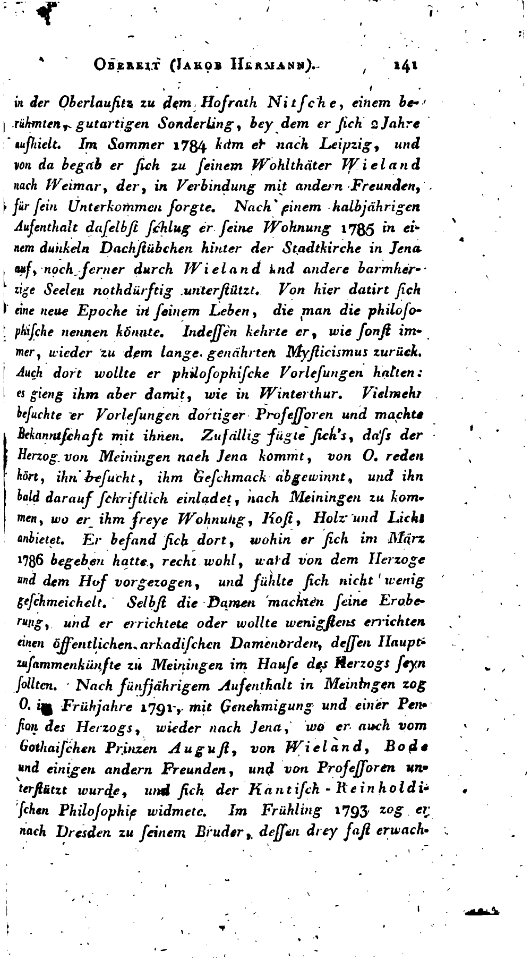 OBEREIT (JAKOB HERMANN). 141
in der Oberlauſitz zu dem Hofrath Nitſche, einem be-
rühmten, gutartigen Sonderling, bey dem er ſich 2 Jahre
aufhielt. Im Sommer 1784 kam er nach Leipzig, und
von da begab er ſich zu ſeinem Wohlthäter Wieland
nach Weimar, der, in Verbindung mit andern Freunden,
für ſein Unterkommen ſorgte. Nach einem halbjährigen
Aufenthalt daſelbſt ſchlug er ſeine Wohnung 1785 in ei-
nem dunkeln Dachſtübchen hinter der Stadtkirche in Jena
auf, noch ferner durch Wieland und andere barmher-
zige Seelen nothdürftig unterſtützt. Von hier datirt ſich
eine neue Epoche in ſeinem Leben, die man die philoſo-
phiſche nennen könnte. Indeſſen kehrte er, wie ſonſt im-
mer, wieder zu dem lange genährten Myſticismus zurück.
Auch dort wollte er philoſophiſche Vorleſungen halten:
es gieng ihm aber damit, wie in Winterthur. Vielmehr
beſuchte er Vorleſungen dortiger Profeſſoren und machte
Bekanntſchaft mit ihnen. Zufällig fügte ſich's, daſs der
Herzog von Meiningen nach Jena kommt, von O. reden
hört, ihn beſucht, ihm Geſchmack abgewinnt, und ihn
bald darauf ſchriftlich einladet, nach Meiningen zu kom-
men, wo er ihm freye Wohnung, Koſt, Holz und Licht
anbietet. Er befand ſich dort, wohin er ſich im März
1786 begeben hatte, recht wohl, ward von dem Herzoge
und dem Hof vorgezogen, und fühlte ſich nicht wenig
geſchmeichelt. Selbſt die Damen machten ſeine Erobe-
rung, und er errichtete oder wollte wenigſtens errichten
einen öffentlichen arkadiſchen Damenorden, deſſen Haupt-
zuſammenkünfte zu Meiningen im Hauſe des Herzogs ſeyn
ſollten. Nach fünfjährigem Aufenthalt in Meiningen zog
O. im Frühjahre 1791, mit Genehmigung und einer Pen-
ſion des Herzogs, wieder nach Jena, wo er auch vom
Gothaiſchen Prinzen Auguſt, von Wieland, Bode
und einigen andern Freunden, und von Profeſſoren un-
terſtützt wurde, und ſich der Kantiſch-Reinholdi-
ſchen Philoſophie widmete. Im Frühling 1793 zog er
nach Dresden zu ſeinem Bruder, deſſen drey faſt erwach-